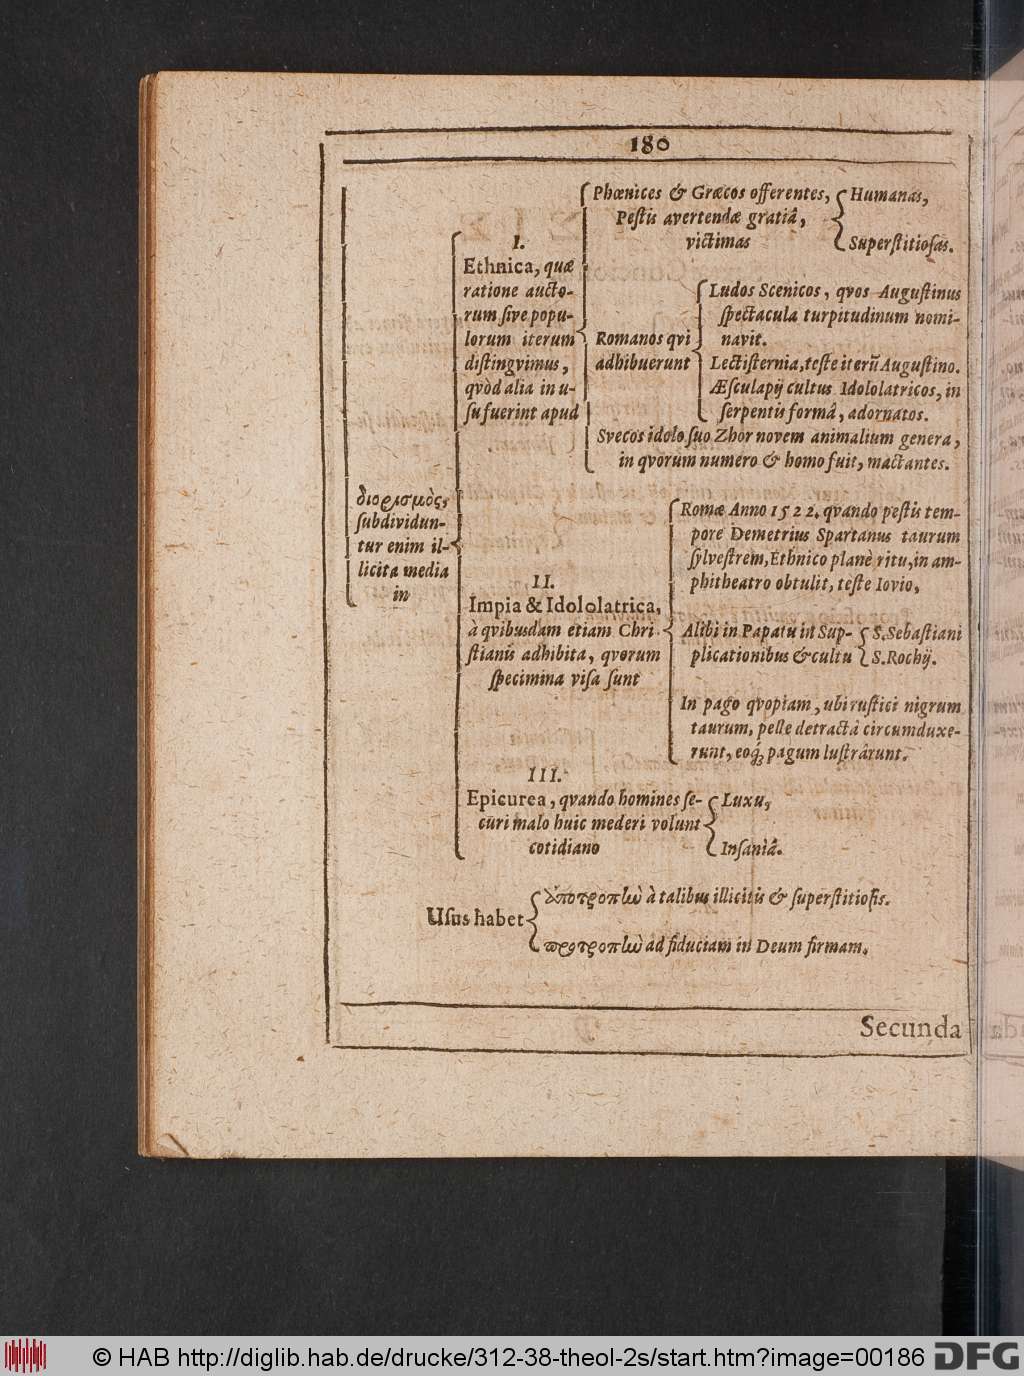 180
διορισμὸς,
ſubdividun-
tur enim il-
licita media
in
I.
Ethnica, quæ
ratione aucto-
rum ſive popu-
lorum iterum
diſtingvimus,
qvòd alia in u-
ſu fuerint apud
Phœnices & Græcos offerentes,
Peſtis avertendæ gratiâ,
victimas
Humanas,
Superſtitioſas.
Romanos qvi
adhibuerunt
Ludos Scenicos, qvos Auguſtinus
ſpectacula turpitudinum nomi-
navit.
Lectiſternia, teſte iterũ Auguſtino.
Æſculapij cultus Idololatricos, in
ſerpentis formâ, adornatos.
Svecos idolo ſuo Thor novem animalium genera,
in qvorum numero & homo fuit, mactantes.
II.
Impia & Idololatrica,
à qvibusdam etiam Chri-
ſtianis adhibita, qvorum
ſpecimina viſa ſunt
Romæ Anno 1522. qvando peſtis tem-
pore Demetrius Spartanus taurum
ſylveſtrem, Ethnico planè ritu, in am-
phitheatro obtulit, teſte Iovio,
Alibi in Papatu in Sup-
plicationibus & cultu
S. Sebaſtiani
S. Rochij.
In pago qvopiam, ubi ruſtici nigrum
taurum, pelle detractâ circumduxe-
runt, eoq́; pagum luſtrârunt.
III.
Epicurea, qvando homines ſe-
curi malo huic mederi volunt
cotidiano
Luxu,
Inſaniâ.
Uſus habet
ἀποτροπὴν à talibus illicitis & ſuperſtitioſis.
προτροπὴν ad fiduciam in Deum firmam.
Secunda
© HAB http://diglib.hab.de/drucke/312-38-theol-2s/start.htm?image=00186
DFG